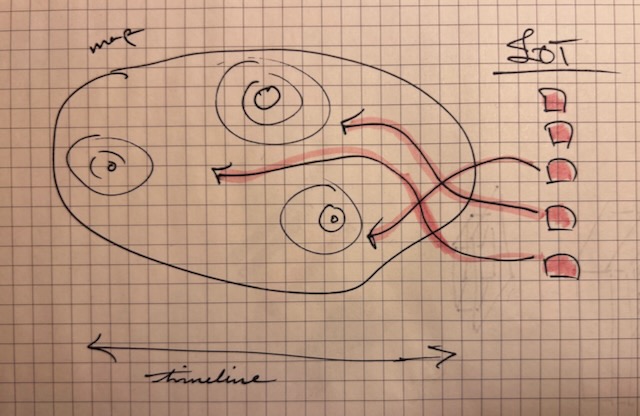 map
IoT
timeline